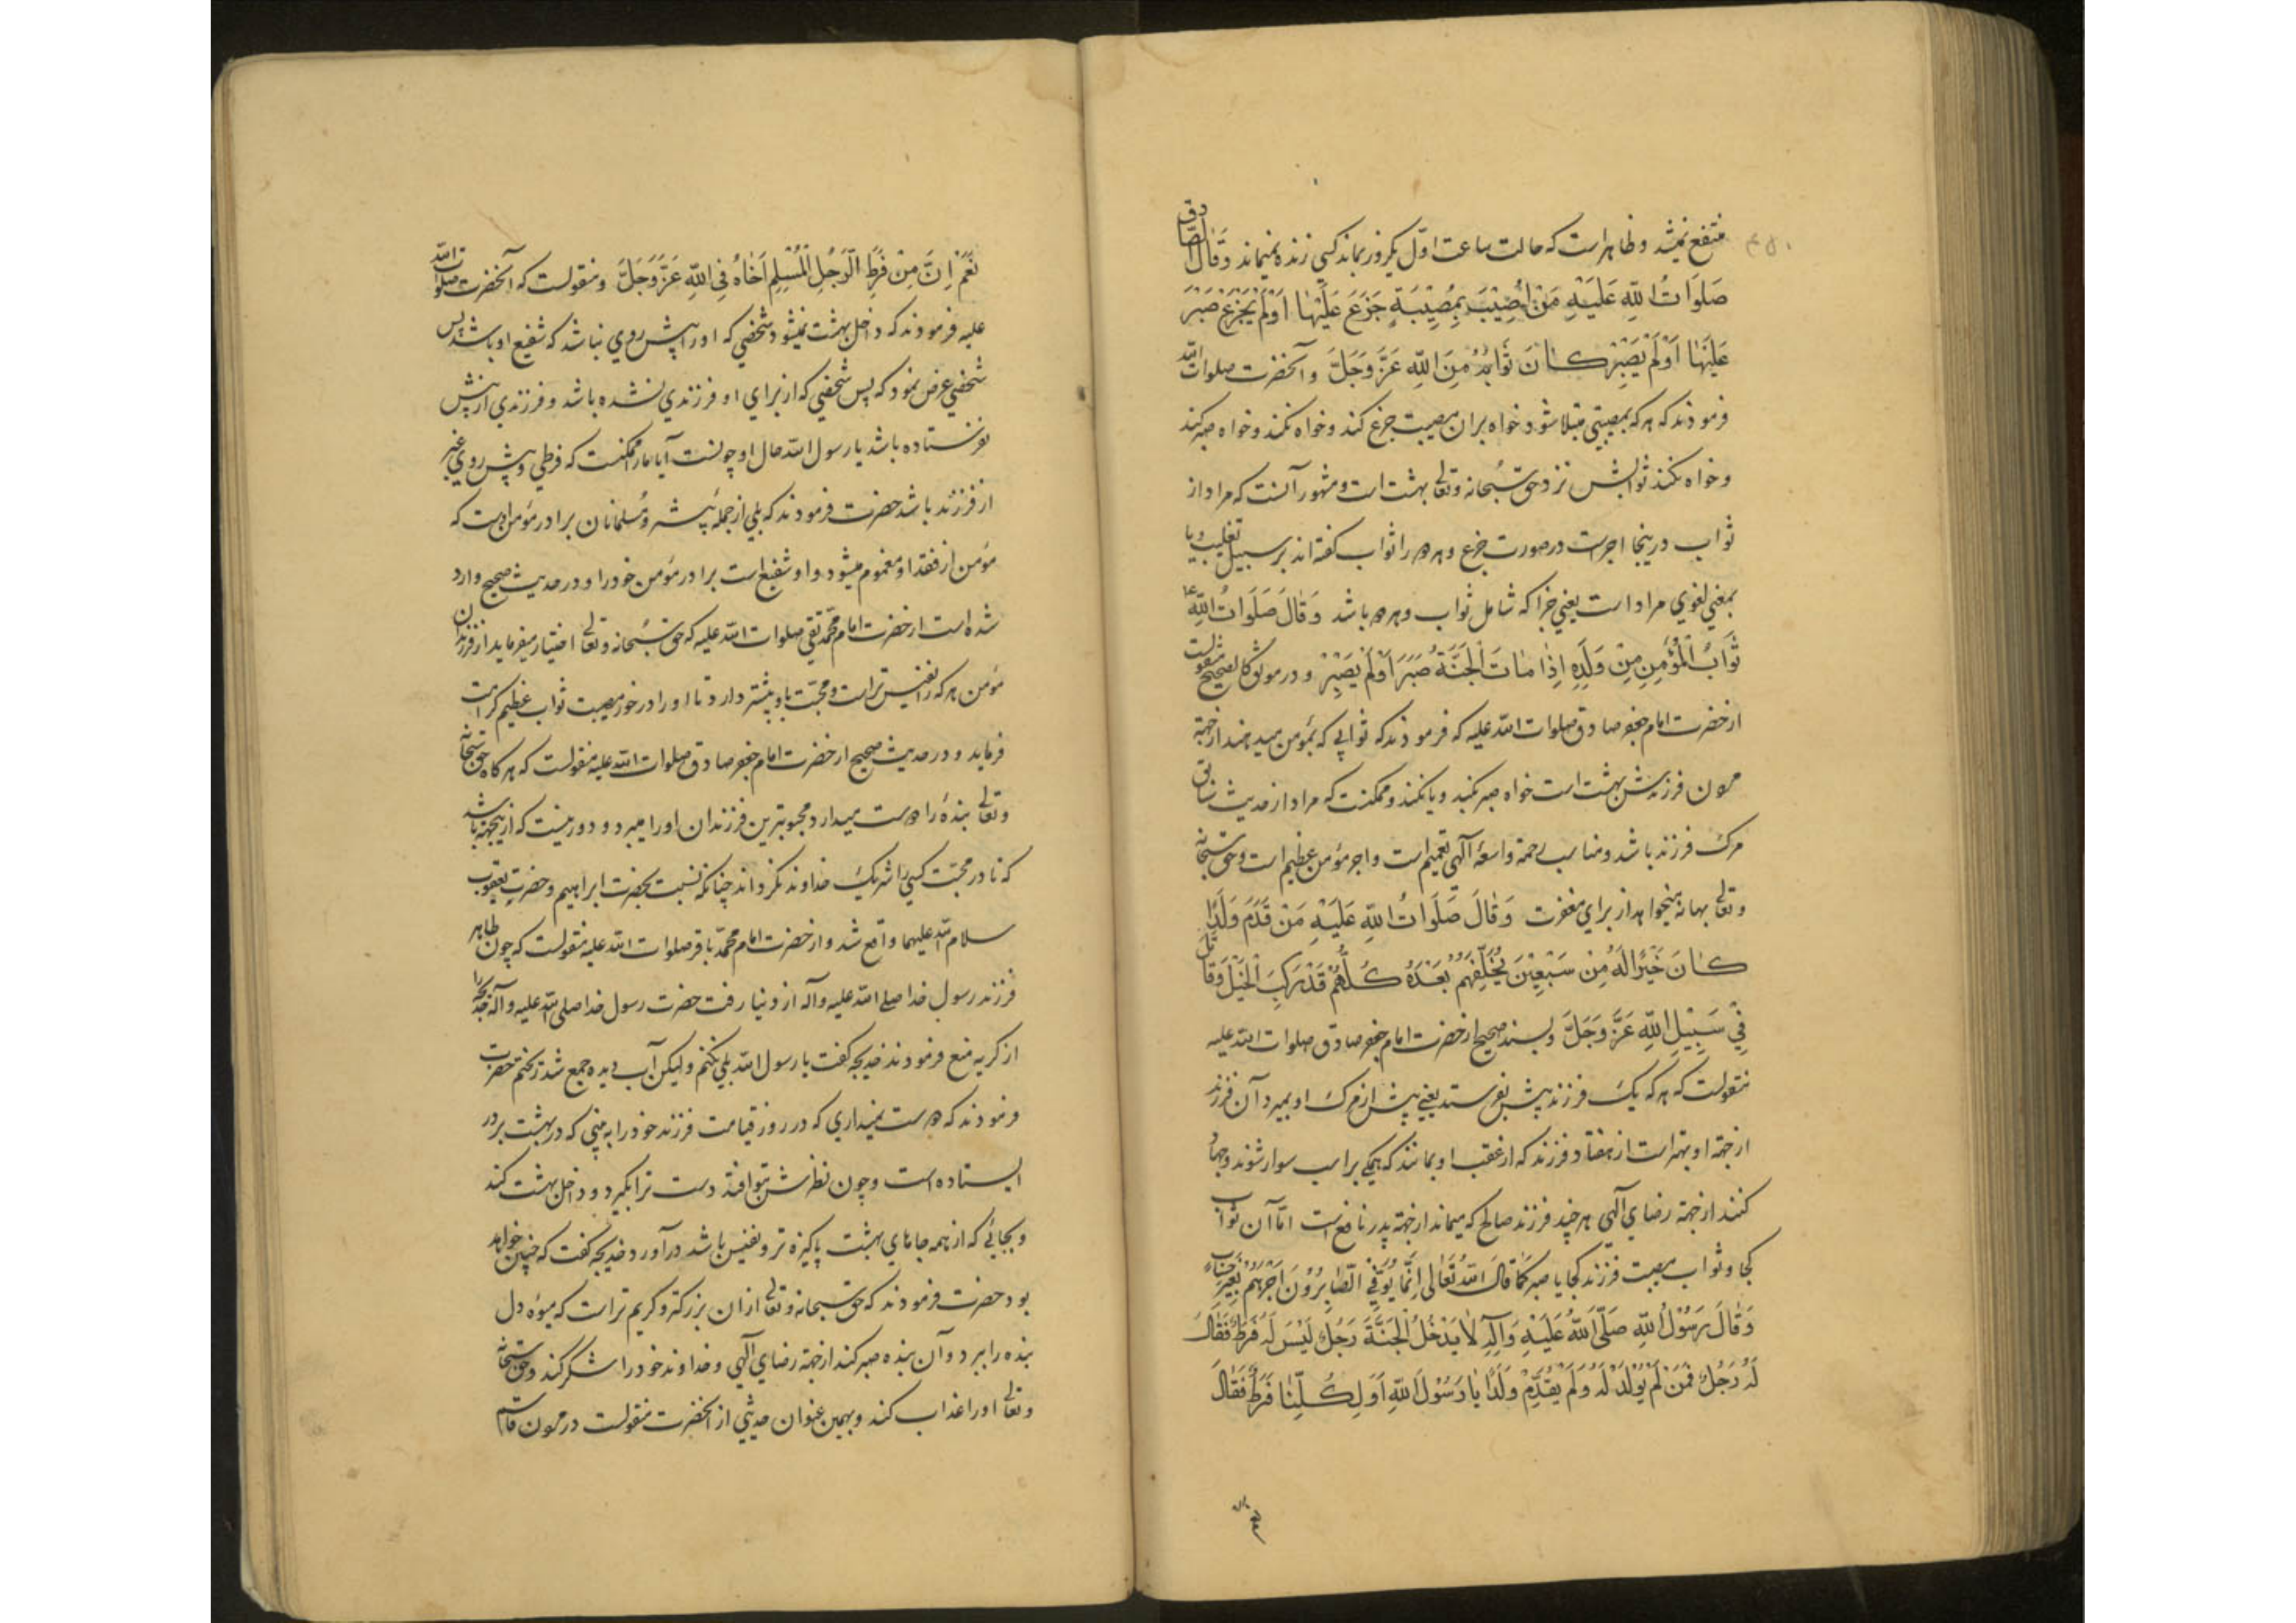 منتفع نمیشد و ظاهراست که حالت ساعت اوّل یکروز بماند کسی زنده نمیماند وَقٰالَ الصّادق
صَلَوَاتُ اللّهِ عَلَیْهِ مَنْ اُصِیْبَ بِمُصِیْبَةٍ جَزَعَ عَلَیْهٰا اَوْلَمْ یَجْزَعْ صَبَرَ
عَلَیْهٰا اَوْلَمْ یَصْبِرْ کٰانَ ثَوَابُهُ مِنَ اللّهِ عَزَّوَجَلَّ و آنحضرت صلوات الله
فرمودند که هرکه بمصیبتی مبتلا شود خواه بران مصیبت جزع کند و خواه نکند و خواه صبر کند
و خواه نکند ثوابش نزد حق سُبحانه و تعالی بهشت است و مشهور آنست که مراد از
ثواب درینجا اجراست در صورت جزع و هردو را ثواب کفته اند بر سبیل تغلیب و یا
بمعنی لغوی مراد است یعنی جزا که شامل ثواب و هردو باشد وَقٰالَ صَلَوَاتُ اللّهِ
ثَوَابُ الْمُؤْمِنِ مِنْ وَلَدِهِ اِذٰا مٰاتَ الْجَنَّةُ صَبَرَ اَوْلَمْ یَصْبِرْ و در موثق کالصحیح منقولست
از حضرت امام جعفر صادق صلوات الله علیه که فرمودند که ثوابی که بمؤمن میدهند از جهة
مردن فرزندش بهشت است خواه صبر بکند و یا نکند و ممکنست که مراد از حدیث سابق
مرک فرزند باشد و مناسب رحمة واسعهٔ آلهی تعمیم است و اجر مؤمن عظیم است و حق سبحانه
و تعالی بهانه میخواهد از برای مغفرت وَقٰالَ صَلَوَاتُ اللّهِ عَلَیْهِ مَنْ قَدَّمَ وَلَدًا
کٰانَ خَیْرًا لَهُ مِنْ سَبْعِیْنَ یُخَلِّفُهُمْ بَعْدَهُ کُلُّهُمْ قَدْ رَکِبَ الْخَیْلَ وَقٰاتَلَ
فِیْ سَبِیْلِ اللّهِ عَزَّ وَجَلَّ و بسند صحیح از حضرت امام جعفر صادق صلوات الله علیه
منقولست که هرکه یک فرزند پیش بفرستد یعنی پیش از مرک او بمیرد آن فرزند
از جهة او بهتر است از هفتاد فرزند که از عقب او بمانند که همکی بر اسب سوار شوند و جهاد
کنند از جهة رضای آلهی هر چند فرزند صالح که میماند از جهة پدر نافع است امّا آن ثواب
کجا و ثواب مصیبت فرزند کجا با صبر کَمٰا قٰالَ اللّهُ تَعٰالٰی اِنَّمٰا یُوَفَّی الصّٰابِرُوْنَ اَجْرَهُمْ بِغَیْرِ حِسٰابٍ
وَقٰالَ رَسُوْلُ اللّهِ صَلَّی اللّهُ عَلَیْهِ وَآلِهِ لٰا یَدْخُلُ الْجَنَّةَ رَجُلٌ لَیْسَ لَهُ فَرَطٌ فَقٰالَ
لَهُ رَجُلٌ فَمَنْ لَمْ یُوْلَدْ لَهُ وَلَمْ یُقَدِّمْ وَلَدًا یٰا رَسُوْلَ اللّهِ اَوَلِکُلِّنٰا فَرَطٌ فَقٰالَ
نَعَمْ اِنَّ مِنْ فَرَطِ الرَّجُلِ الْمُسْلِمِ اَخٰاهُ فِی اللّهِ عَزَّوَجَلَّ و منقولست که آنحضرت صلوات الله
علیه فرمودند که داخل بهشت نمیشود شخصی که او را پیش روی نباشد که شفیع او باشد پس
شخصی عرض نمود که پس شخصی که از برای او فرزندی نشده باشد و فرزندی از پیش
نفرستاده باشد یا رسول الله حال او چونست آیا ما را ممکنست که فرطی و پیش روی غیر
از فرزند باشد حضرت فرمودند که بلی از جمله پیشرو مُسلمانان برادر مؤمن اوست که
مؤمن از فقد او مغموم میشود و او شفیع است برادر مؤمن خود را و در حدیث صحیح وارد
شده است از حضرت امام محمّد تقی صلوات الله علیه که حق سُبحانه و تعالی اختیار میفرماید از فرزندان
مؤمن هر که را نفیس تر است و محبّت باو بیشتر دارد تا او را درخور مصیبت ثواب عظیم کرامت
فرماید و در حدیث صحیح از حضرت امام جعفر صادق صلوات الله علیه منقولست که هر کاه حق سبحانه
و تعالی بندهٔ را دوست میدارد محبوبترین فرزندان او را میبرد و دور نیست که از ینجهة باشد
که تا در محبّت کسی را شریک خداوند نکرداند چنانکه نسبت بحضرت ابراهیم و حضرت یعقوب
سلام الله علیهما واقع شد و از حضرت امام محمّد باقر صلوات الله علیه منقولست که چون طاهر
فرزند رسول خدا صلی الله علیه وآله از دنیا رفت حضرت رسول خدا صلی الله علیه وآله خدیجه را
از کریه منع فرمودند خدیجه کفت یا رسول الله بلی نکنم ولیکن آب دیده جمع شد ریختم حضرت
فرمودند که دوست نمیداری که در روز قیامت فرزند خود را به بینی که در بهشت بر در
ایستاده است و چون نظرش بتو افتد دست ترا بکیرد و داخل بهشت کند
و بجائی که از همه جاهای بهشت پاکیزه تر و نفیس باشد درآورد خدیجه کفت که چنین خواهد
بود حضرت فرمودند که حق سبحانه و تعالی ازان بزرکتر و کریم تر است که میوه دل
بنده را ببرد و آن بنده صبر کند از جهة رضای آلهی و خداوند خود را شکر کند و حق سبحانه
و تعالی او را عذاب کند و بهمین عنوان حدیثی از آنحضرت منقولست در مردن قاسم